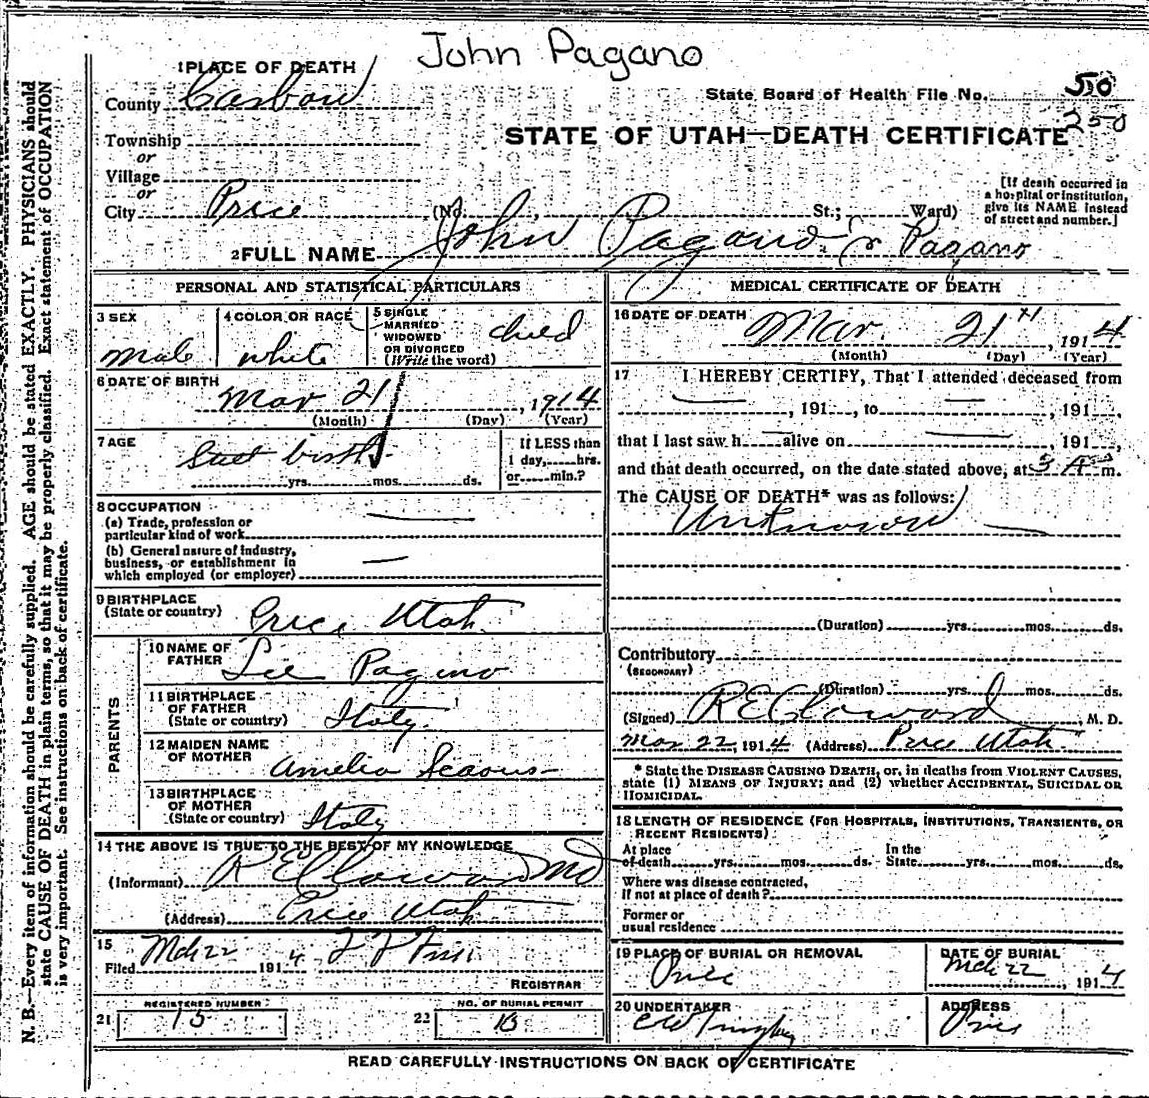 John Pagano
1 PLACE OF DEATH
County Carbon
State Board of Health File No. 50
250
STATE OF UTAH—DEATH CERTIFICATE
Township
or
Village
or
City Price (No. St.; Ward)
[If death occurred in
a hospital or institution,
give its NAME instead
of street and number.]
2 FULL NAME John Pagano or Pagano
PERSONAL AND STATISTICAL PARTICULARS
3 SEX
male
4 COLOR OR RACE
white
5 SINGLE
MARRIED
WIDOWED
OR DIVORCED
(Write the word)
child
6 DATE OF BIRTH
Mar 21, 1914
(Month) (Day) (Year)
7 AGE
birth
yrs. mos. ds.
If LESS than
1 day, hrs.
or min.?
8 OCCUPATION
(a) Trade, profession or
particular kind of work
(b) General nature of industry,
business, or establishment in
which employed (or employer)
9 BIRTHPLACE
(State or country) Price Utah
PARENTS
10 NAME OF
FATHER Pagano
11 BIRTHPLACE
OF FATHER
(State or country) Italy
12 MAIDEN NAME
OF MOTHER Amelia
13 BIRTHPLACE
OF MOTHER
(State or country) Italy
14 THE ABOVE IS TRUE TO THE BEST OF MY KNOWLEDGE
(Informant) R E Cloward MD
(Address) Price Utah
15
Filed Mch 22 1914
REGISTRAR
REGISTERED NUMBER
21 15
NO. OF BURIAL PERMIT
22 10
MEDICAL CERTIFICATE OF DEATH
16 DATE OF DEATH Mar. 21, 1914
(Month) (Day) (Year)
17 I HEREBY CERTIFY, That I attended deceased from
, 191 , to , 191 ,
that I last saw h alive on , 191 ,
and that death occurred, on the date stated above, at 3 A m.
The CAUSE OF DEATH* was as follows:
Unknown
(Duration) yrs. mos. ds.
Contributory
(SECONDARY)
(Duration) yrs. mos. ds.
(Signed) R E Cloward, M. D.
Mar 22, 1914 (Address) Price Utah
* State the DISEASE CAUSING DEATH, or, in deaths from VIOLENT CAUSES,
state (1) MEANS OF INJURY; and (2) whether ACCIDENTAL, SUICIDAL OR
HOMICIDAL.
18 LENGTH OF RESIDENCE (FOR HOSPITALS, INSTITUTIONS, TRANSIENTS, OR
RECENT RESIDENTS)
At place In the
of death yrs. mos. ds. State yrs. mos. ds.
Where was disease contracted,
If not at place of death?
Former or
usual residence
19 PLACE OF BURIAL OR REMOVAL
Price
DATE OF BURIAL
Mch 22, 1914
20 UNDERTAKER
ADDRESS
Price
READ CAREFULLY INSTRUCTIONS ON BACK OF CERTIFICATE
N. B.—Every item of information should be carefully supplied. AGE should be stated EXACTLY. PHYSICIANS should
state CAUSE OF DEATH in plain terms, so that it may be properly classified. Exact statement of OCCUPATION
is very important. See instructions on back of certificate.